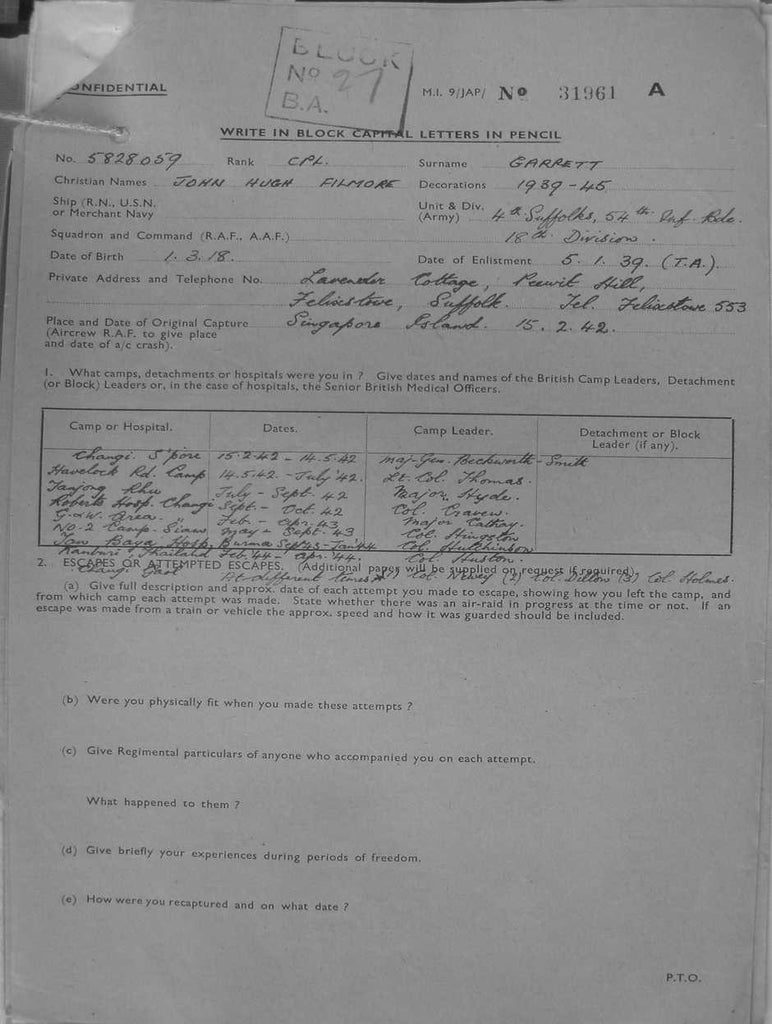 BLOCK
No 27
B.A.
CONFIDENTIAL
M.I. 9/JAP/ No 31961 A
WRITE IN BLOCK CAPITAL LETTERS IN PENCIL
No. 5828059 Rank CPL. Surname GARRETT
Christian Names JOHN HUGH FILMORE Decorations 1939-45
Ship (R.N., U.S.N. or Merchant Navy
Unit & Div. (Army) 4th Suffolks, 54th Inf. Bde.
Squadron and Command (R.A.F., A.A.F.) 18th Division.
Date of Birth 1.3.18. Date of Enlistment 5.1.39. (T.A.)
Private Address and Telephone No. Lavender Cottage, Peewit Hill,
Felixstowe, Suffolk. Tel. Felixstowe 553
Place and Date of Original Capture Singapore Island. 15.2.42.
(Aircrew R.A.F. to give place
and date of a/c crash).
1. What camps, detachments or hospitals were you in ? Give dates and names of the British Camp Leaders, Detachment
(or Block) Leaders or, in the case of hospitals, the Senior British Medical Officers.
Camp or Hospital. Dates. Camp Leader. Detachment or Block Leader (if any).
Changi. S'pore 15.2.42 - 14.5.42 Maj-Gen. Beckworth-Smith
Havelock Rd. Camp 14.5.42. - July '42. Lt. Col. Thomas.
Tanjong Rhu July - Sept. 42 Major Hyde.
Roberts Hosp. Changi Sept. - Oct. 42 Col. Craven.
G.&W. Area. " Feb. - Apr. 43 Major
No. 2 Camp. Siam May - Sept. 43 Col.
Tan Baya Hosp. Burma Sept 43 - Jan '44 Col. Hutchinson
Kanburi, Thailand Feb. '44 - Apr. '44. Col. Huston.
Changi Gaol At different times (1) Col. Newey (2) Col. Dillon (3) Col Holmes.
2. ESCAPES OR ATTEMPTED ESCAPES. (Additional paper will be supplied on request if required).
(a) Give full description and approx. date of each attempt you made to escape, showing how you left the camp, and
from which camp each attempt was made. State whether there was an air-raid in progress at the time or not. If an
escape was made from a train or vehicle the approx. speed and how it was guarded should be included.
(b) Were you physically fit when you made these attempts ?
(c) Give Regimental particulars of anyone who accompanied you on each attempt.
What happened to them ?
(d) Give briefly your experiences during periods of freedom.
(e) How were you recaptured and on what date ?
P.T.O.